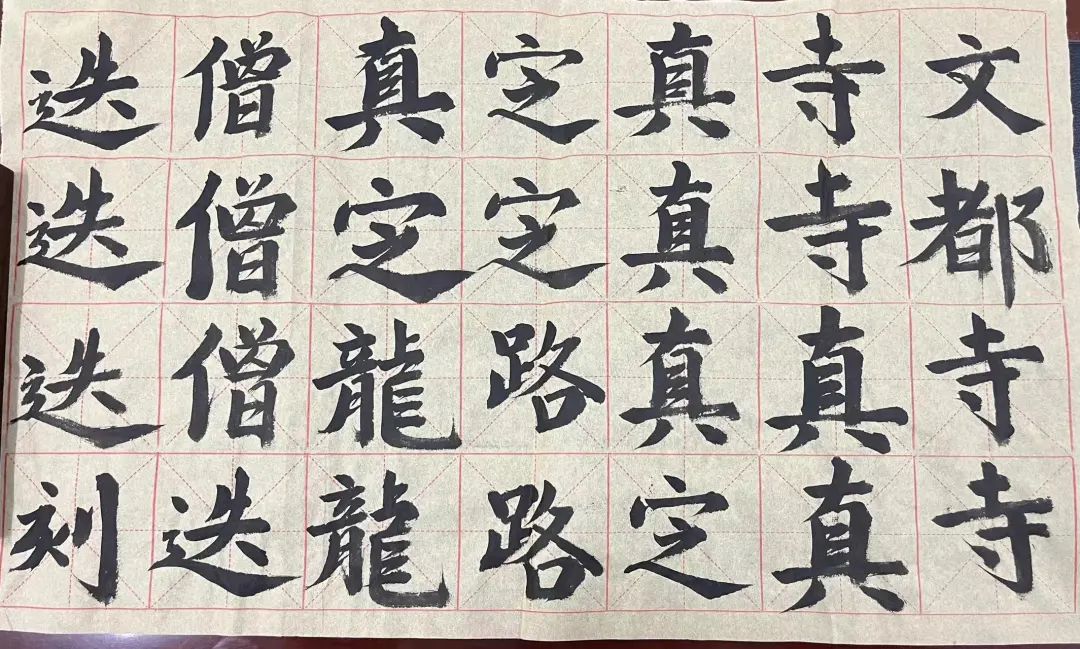 文都寺寺
寺寺真真
真真真定
定定路路
真定龍龍
僧僧僧迭
迭迭迭刻